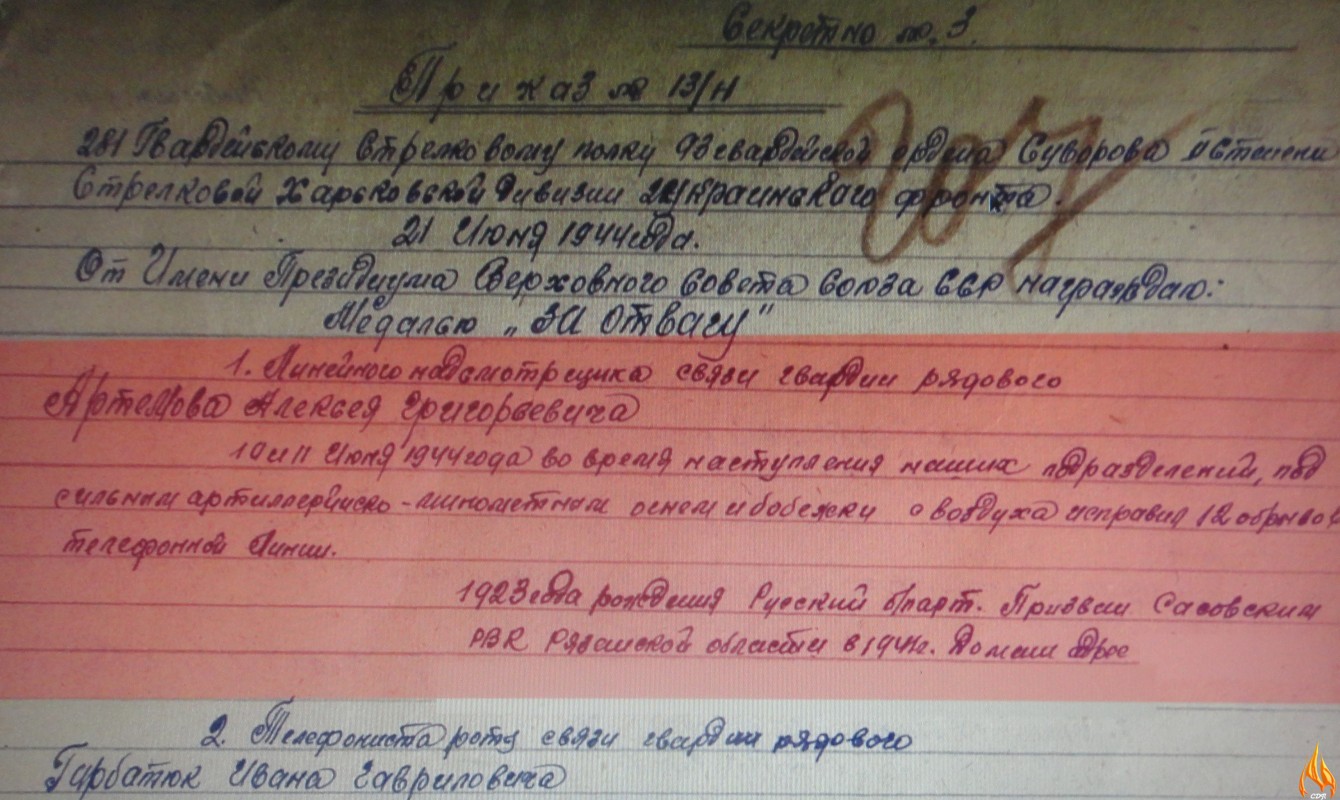 Секретно экз. 3.
Приказ № 13/н
281 Гвардейскому Стрелковому полку 93 гвардейской ордена Суворова II Степени
Стрелковой Харьковской Дивизии 2 Украинского фронта.
21 Июня 1944 года.
От Имени Президиума Верховного Совета Союза ССР награждаю:
Медалью „За отвагу"
1. Линейного надсмотрщика связи гвардии рядового
Артемова Алексея Григорьевича
10 и 11 Июня 1944 года во время наступления наших подразделений, под
сильным артиллерийско-минометным огнем и бобежки с воздуха исправил 12 обрыво
телефонной Линии.
1923 года рождения Русский б/парт. Призван Сасовским
РВК Рязанской области в 1941г. Домаш адрес
2. Телефониста роты связи гвардии рядового
Гарбатюк Ивана Гавриловича
CDJP